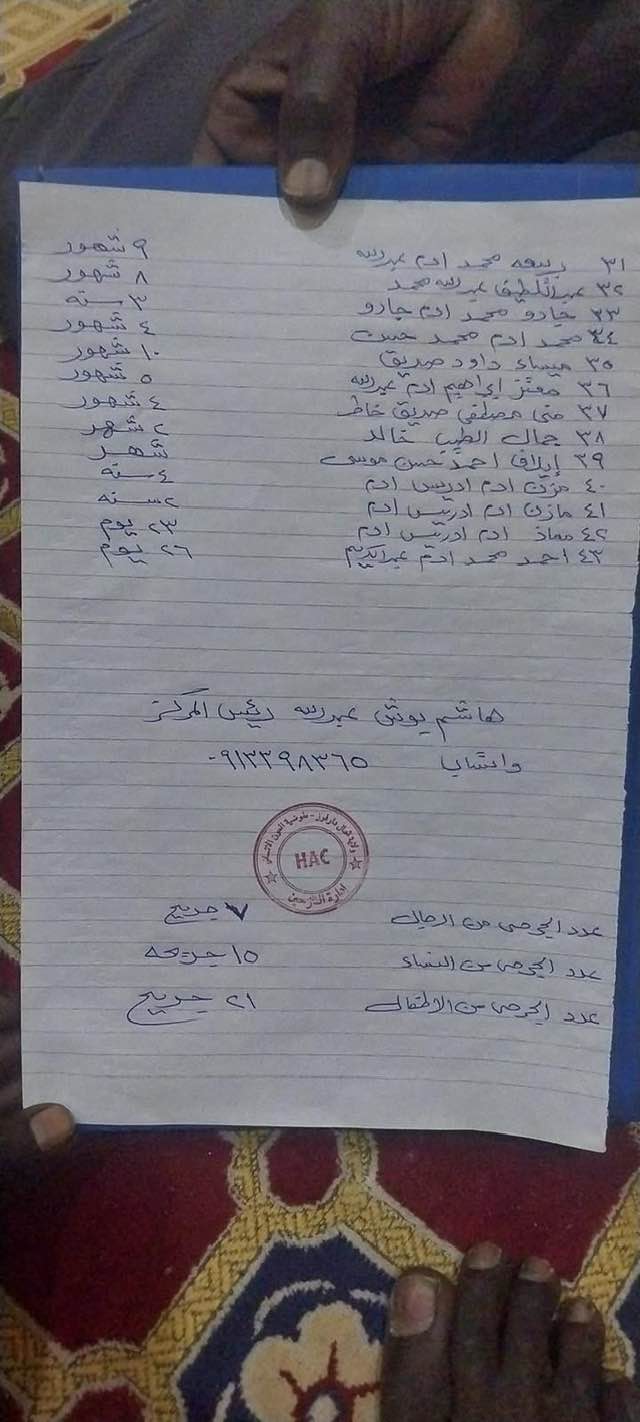 ٣١ ربيعه محمد ادم عبدالله ٩ شهور
٣٢ عبداللطيف عبدالله محمد ٨ شهور
٣٣ جادو محمد ادم جادو ٣ سنه
٣٤ محمد ادم محمد حسن ٤ شهور
٣٥ ميساء داود صديق ١٠ شهور
٣٦ معتز ابراهيم ادم عبدالله ٥ شهور
٣٧ منى مصطفى صديق خاطر ٤ شهور
٣٨ جمال الطيب خالد ٢ شهر
٣٩ إيلاف احمد حسن موسى شهر
٤٠ مزن ادم ادريس ادم ٤ سنه
٤١ مازن ادم ادريس ادم ٢ سنه
٤٢ معاذ ادم ادريس ادم ٢٣ يوم
٤٣ احمد محمد ادم عبدالكريم ٢٦ يوم
هاشم عبدالله رئيس المركز
واتساب ٠٩١٢٣٩٨٣٦٥
ولاية شمال دارفور - مفوضية العون الانساني
HAC
ادارة النازحين
عدد الجرحى من الرجال ٧ جريح
عدد الجرحى من النساء ١٥ جريحه
عدد الجرحى من الاطفال ٢١ جريح